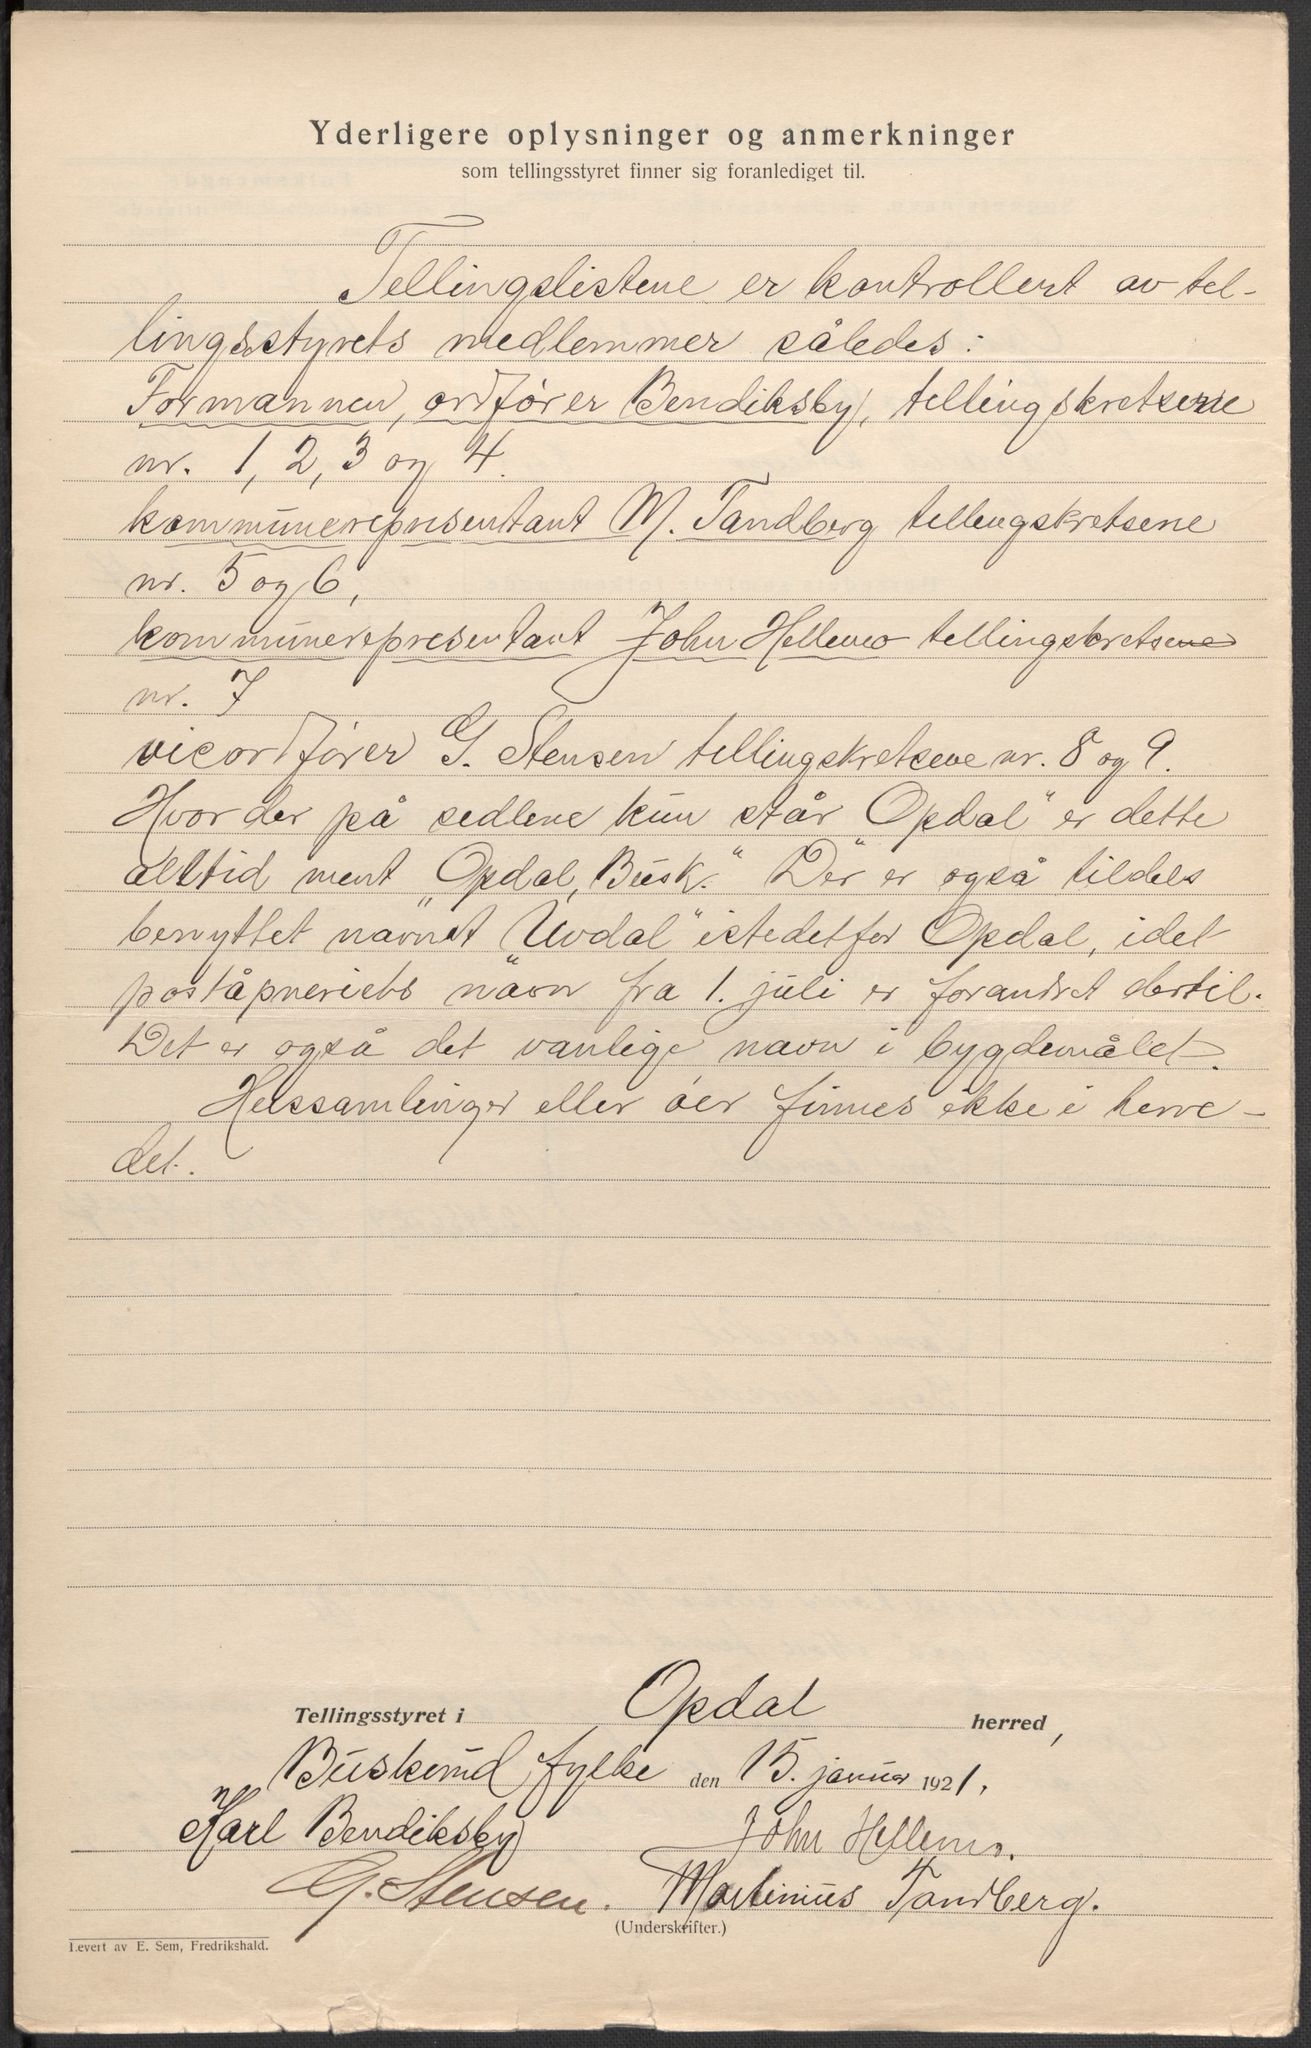 Yderligere oplysninger og anmerkninger
som tellingsstyret finner sig foranlediget til.
Tellingslistene er kontrollert av tel-
lingsstyrets medlemmer således:
Formannen, ordfører Bendiksby, tellingskretsene
nr. 1, 2, 3 og 4.
kommunerepresentant M. Tandberg tellingskretsene
nr. 5 og 6,
kommunerepresentant John Hellemo tellingskretsene
nr. 7
viceordfører G. Stensen tellingskretsene nr. 8 og 9.
Hvor der på sedlene kun står „Opdal" er dette
alltid ment „Opdal, Busk." Der er også tildels
benyttet navnet „Uvdal" istedetfor Opdal, idet
poståpneriets navn fra 1. juli er forandret dertil.
Det er også det vanlige navn i bygdemålet.
Hussamlinger eller øer finnes ikke i herre-
det.
Tellingsstyret i Opdal herred,
Buskerud fylke den 15. januar 1921.
Karl Bendiksby John Hellemo.
G. Stensen. Martinius Tandberg.
(Underskrifter.)
Levert av E. Sem, Fredrikshald.